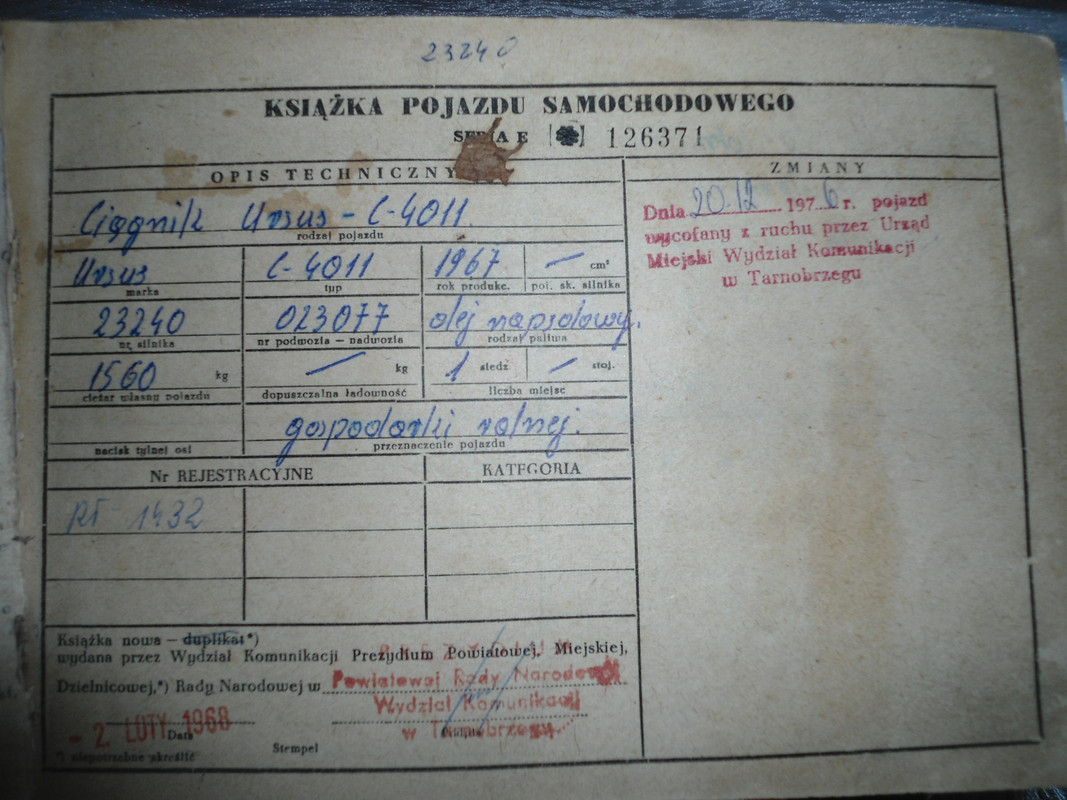 23240
KSIĄŻKA POJAZDU SAMOCHODOWEGO
SERIA E 126371
OPIS TECHNICZNY
Ciągnik Ursus - C-4011.
rodzaj pojazdu
Ursus C-4011 1967 — cm³
marka typ rok produkc. poj. sk. silnika
23240 023077 olej napędowy.
nr silnika nr podwozia – nadwozia rodzaj paliwa
1560 kg — kg 1 siedz — stoj.
ciężar własny pojazdu dopuszczalna ładowność liczba miejsc
gospodarki rolnej.
nacisk tylnej osi przeznaczenie pojazdu
Nr REJESTRACYJNE KATEGORIA
1432
Książka nowa – duplikat*)
wydana przez Wydział Komunikacji Prezydium Powiatowej, Miejskiej,
Dzielnicowej,*) Rady Narodowej w Powiatowej Rady Narodowej
Wydział Komunikacji
w Tarnobrzegu
- 2. LUTY 1968
Data
Stempel
*) niepotrzebne skreślić
ZMIANY
Dnia 20.12 1976 r. pojazd
wycofany z ruchu przez Urząd
Miejski Wydział Komunikacji
w Tarnobrzegu